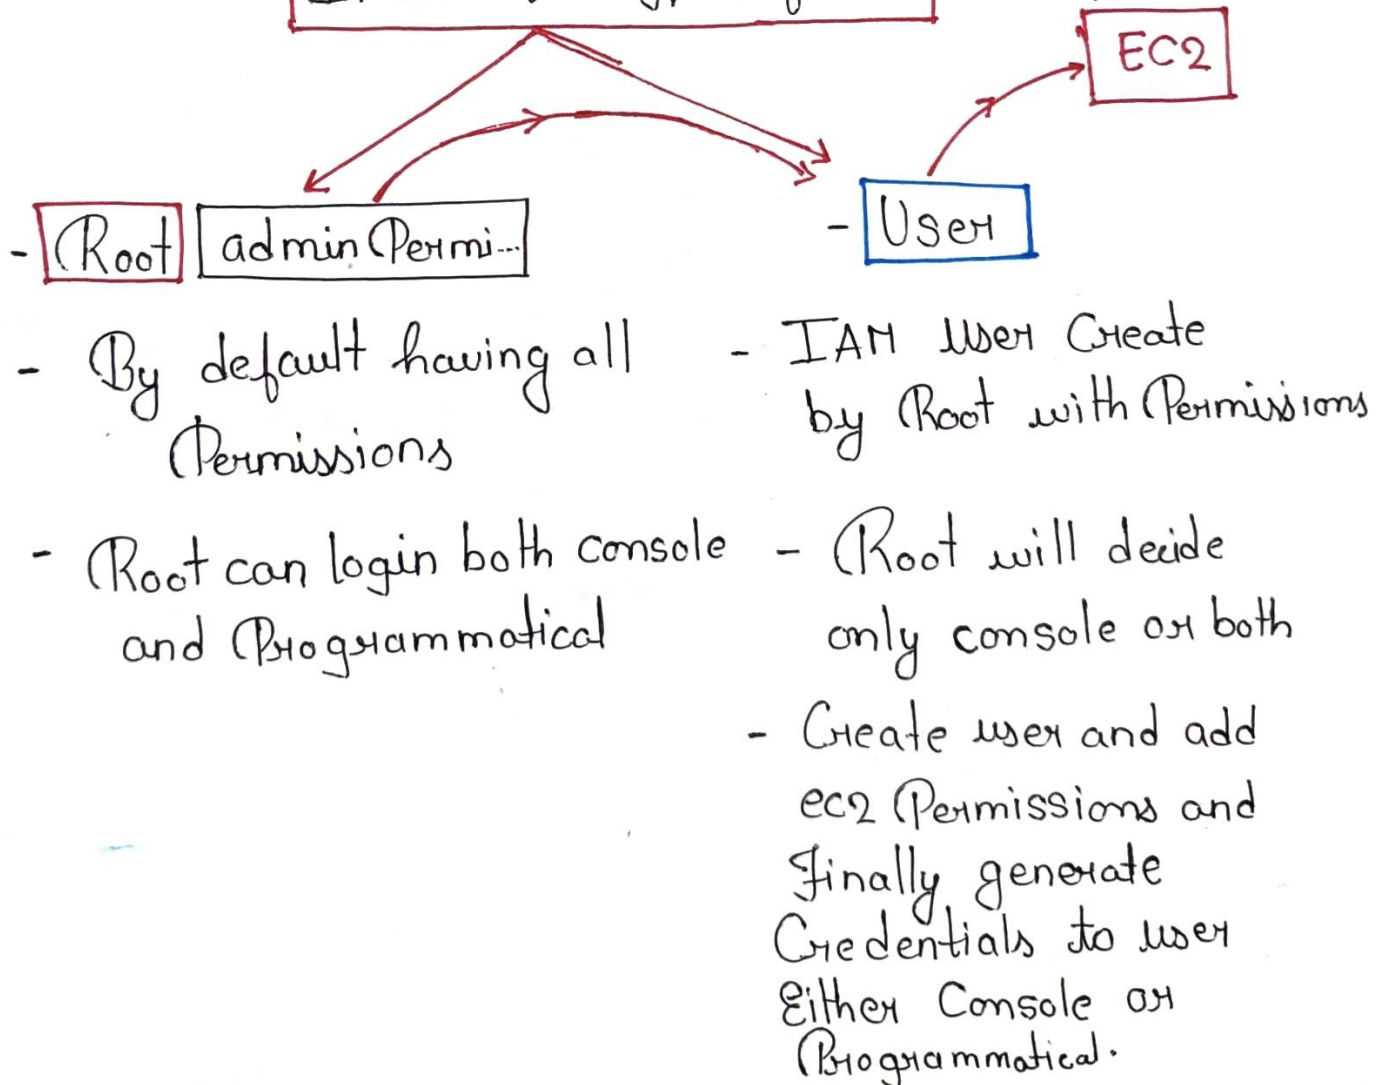 EC2
- Root admin Permi...
- User
- By default having all
Permissions
- Root can login both console
and Programmatical
- IAM User Create
by Root with Permissions
- Root will decide
only console or both
- Create user and add
ec2 Permissions and
Finally generate
Credentials to user
Either Console or
Programmatical.